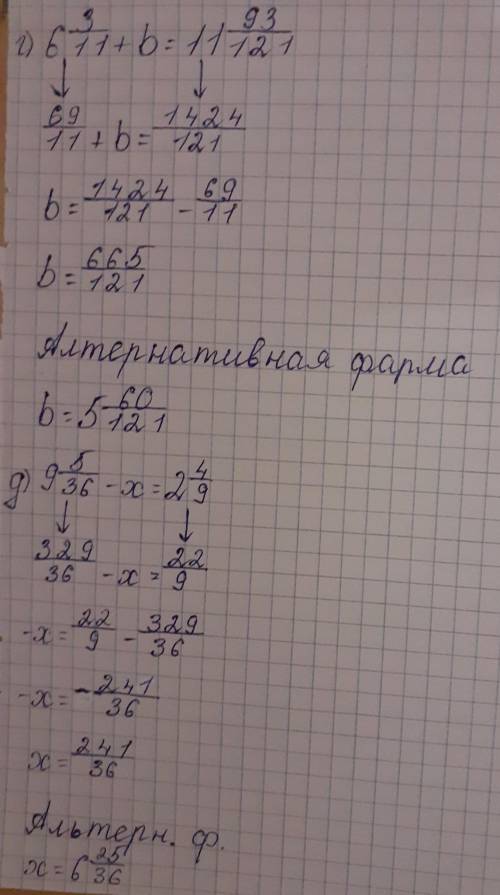 г) 6 3/11 + b = 11 93/121
69/11 + b = 1424/121
b = 1424/121 - 69/11
b = 665/121
Алтернативная фарма
b = 5 60/121
д) 9 5/36 - x = 2 4/9
329/36 - x = 22/9
-x = 22/9 - 329/36
-x = - 241/36
x = 241/36
Альтерн. ф.
x = 6 25/36